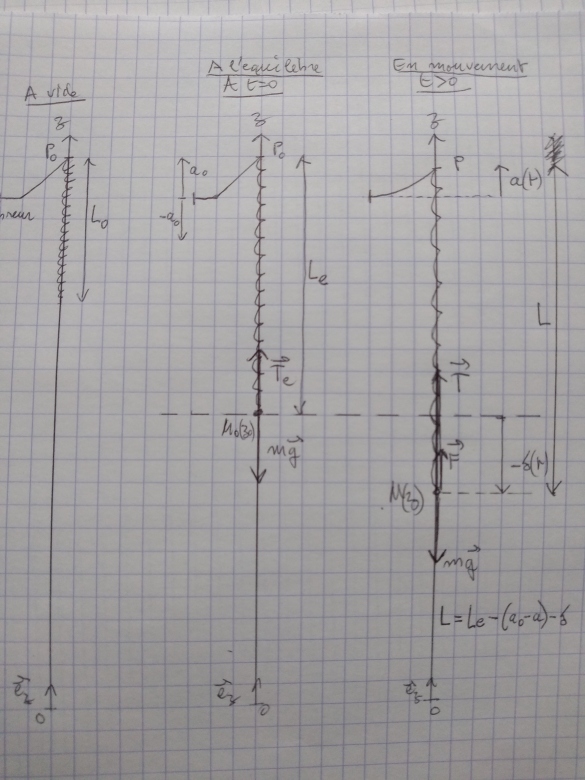 A vide
A l'equilibre
A t=0
En mouvement
t>0
z
P₀
L₀
z
P₀
a₀
-a₀
Lₑ
T⃗ₑ
M₀(z₀)
mg⃗
z
P
a(t)
L
T⃗
F⃗
-δ(t)
M(z)
mg⃗
L = Lₑ - (a₀-a) - δ
e⃗z
0
e⃗z
0
e⃗z
0